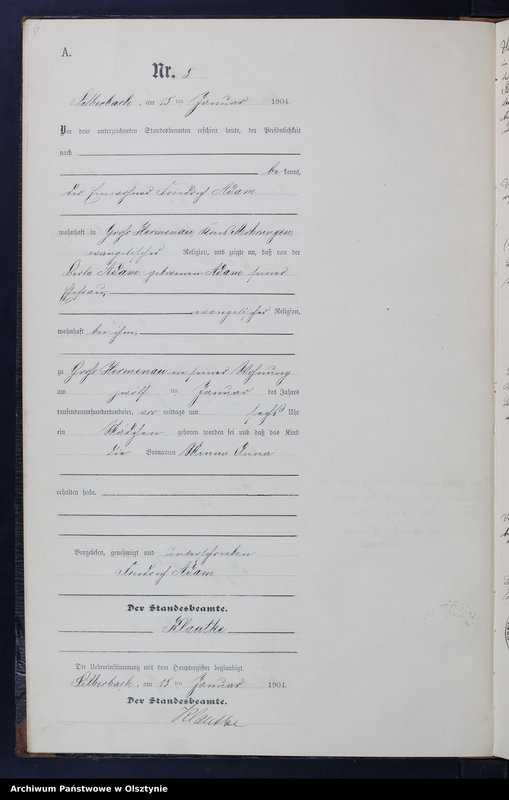 A.
Nr. 3
Silberbach, am 15 ten Januar 1904.
Vor dem unterzeichneten Standesbeamten erschien heute, der Persönlichkeit
nach
be kannt,
der Einwohner Friedrich Adam
wohnhaft in Groß Hermenau, Kreis Mohrungen,
evangelischer Religion, und zeigte an, daß von der
Adam geborenen Adam seiner
Ehefrau,
evangelischer Religion,
wohnhaft bei ihm,
zu Groß Hermenau in seiner Wohnung
am zwölf ten Januar des Jahres
tausendneunhundertundvier, vor mittags um sechs Uhr
ein Mädchen geboren worden sei und daß das Kind
die Vornamen Minna Anna
erhalten habe.
Vorgelesen, genehmigt und unterschrieben
Friedrich Adam
Der Standesbeamte.
Klautke
Die Uebereinstimmung mit dem Hauptregister beglaubigt.
Silberbach, am 15 ten Januar 1904.
Der Standesbeamte.
Klautke
Archiwum Państwowe w Olsztynie